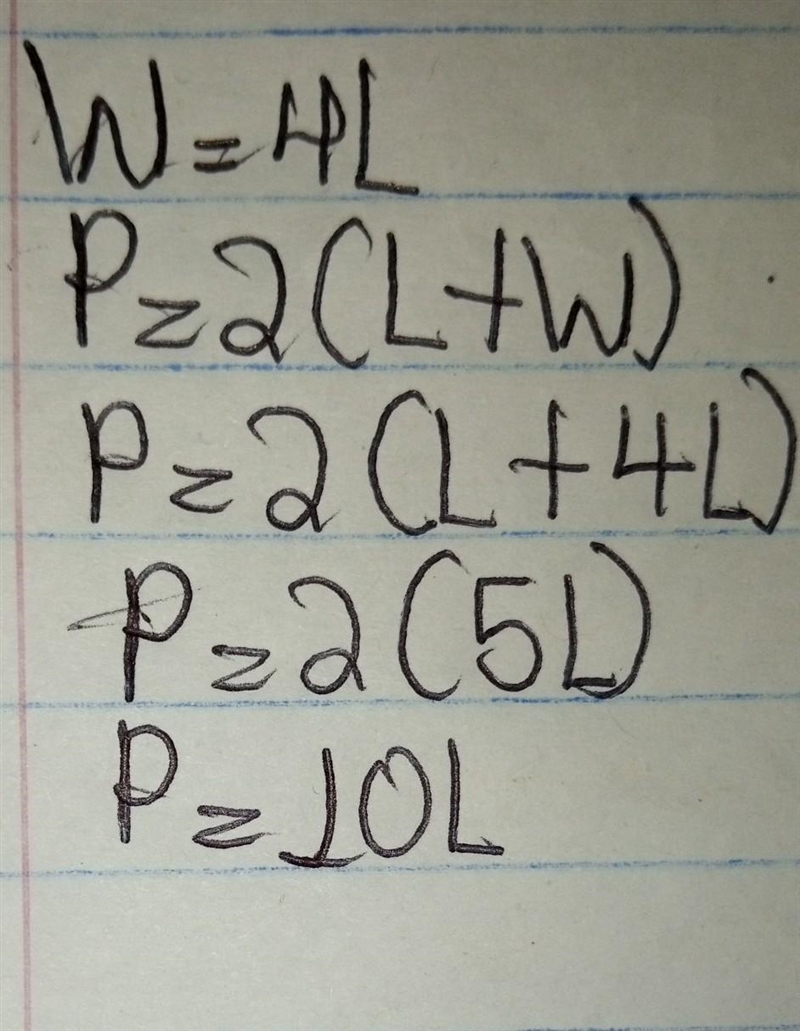 W = 4L
P = 2(L+W)
P = 2(L+4L)
P = 2(5L)
P = 10L